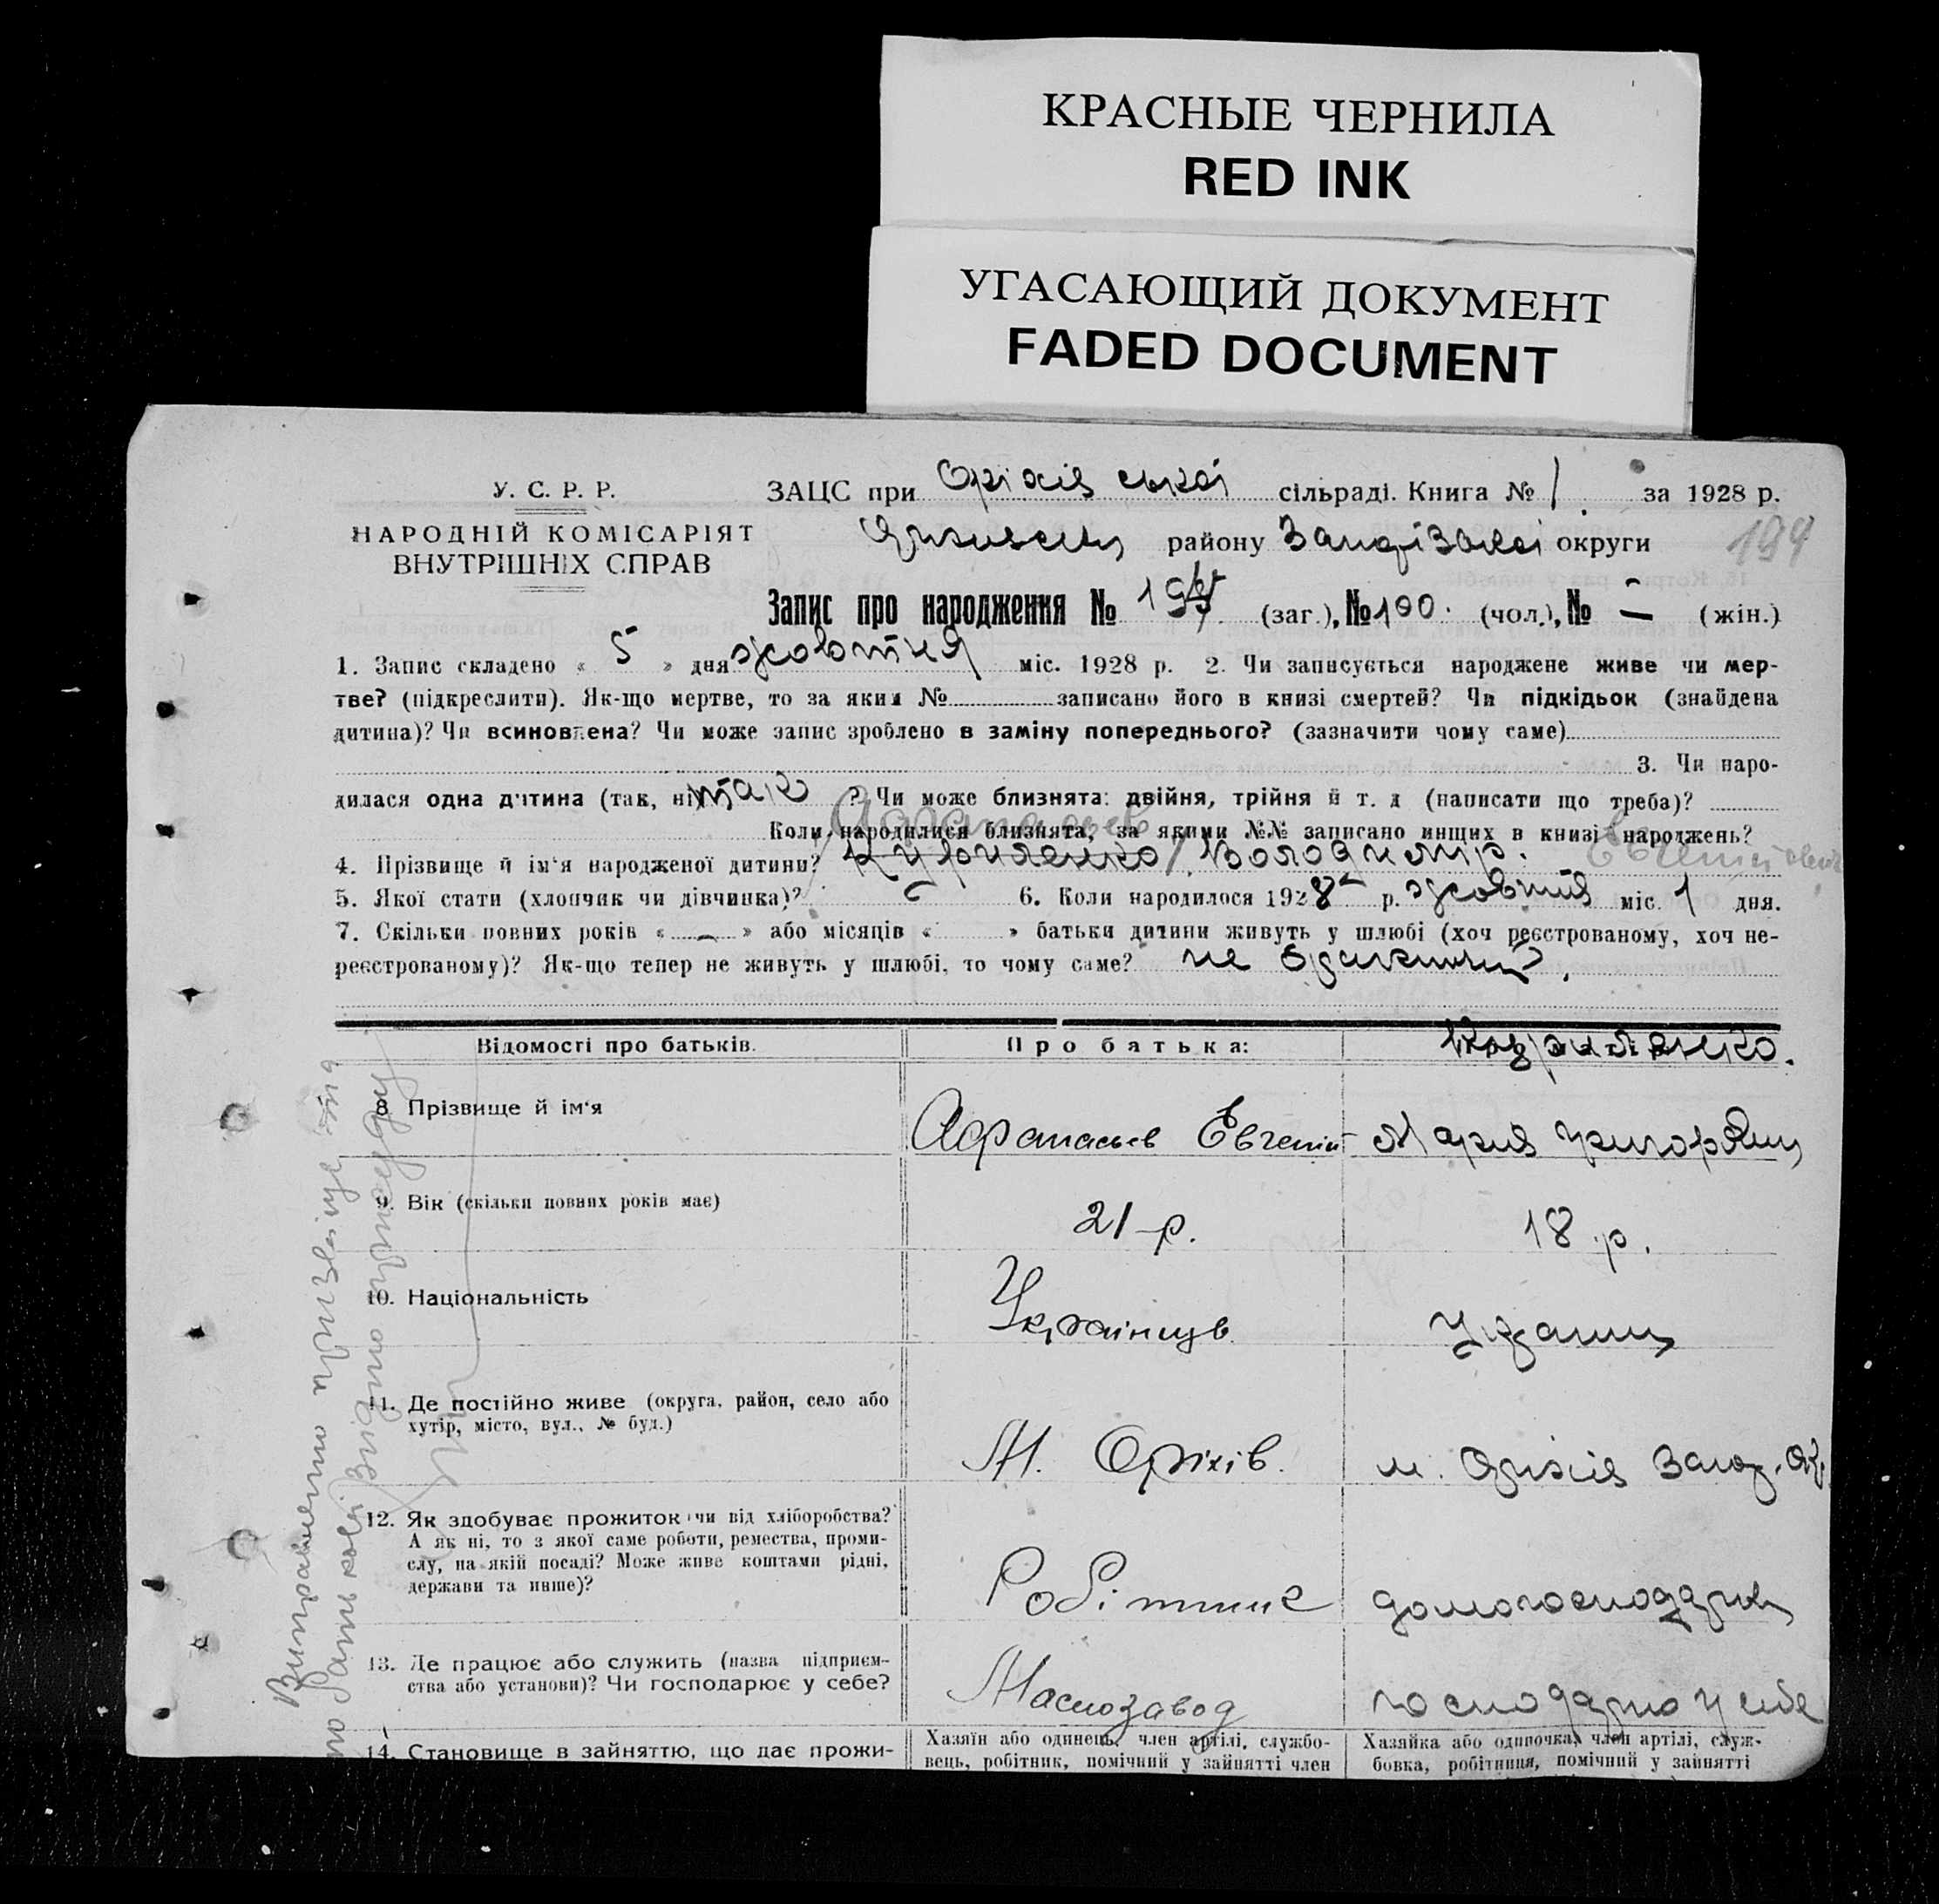 КРАСНЫЕ ЧЕРНИЛА
RED INK
УГАСАЮЩИЙ ДОКУМЕНТ
FADED DOCUMENT
У. С. Р. Р.
НАРОДНІЙ КОМІСАРІЯТ
ВНУТРІШНІХ СПРАВ
ЗАЦС при Оріхівської сільраді. Книга № 1. за 1928 р.
району округи 194
Запис про народження № (заг.), № 190. (чол.), № – (жін.)
1. Запис складено « 5 » дня жовтня міс. 1928 р. 2. Чи записується народжене живе чи мер-
тве? (підкреслити). Як-що мертве, то за яким № записано його в книзі смертей? Чи підкідьок (знайдена
дитина)? Чи всиновлена? Чи може запис зроблено в заміну попереднього? (зазначити чому саме)
3. Чи наро-
дилася одна дитина (так, ні) так ? Чи може близнята: двійня, трійня й т. д (написати що треба)?
Коли народилися близнята, за якими №№ записано инших в книзі народжень?
Афанасьев
4. Прізвище й ім'я народженої дитини? Куриленко Володимир. Євгенійович
5. Якої стати (хлопчик чи дівчинка)? 6. Коли народилося 1928 р. жовтня міс. 1 дня.
7. Скільки повних років « – » або місяців « » батьки дитини живуть у шлюбі (хоч реєстрованому, хоч не-
реєстрованому)? Як-що тепер не живуть у шлюбі, то чому саме? не
Відомості про батьків.
Про батька:
Куриленко.
8. Прізвище й ім'я
Афанасьев Євгений
Мария Григорівни
9. Вік (скільки повних років має)
21 р.
18 р.
10. Національність
Українцив
11. Де постійно живе (округа, район, село або
хутір, місто, вул., № буд.)
М. Оріхів.
м. Оріхів Запор. ок.
12. Як здобуває прожиток чи від хліборобства?
А як ні, то з якої саме роботи, ремества, проми-
слу, на якій посаді? Може живе коштами рідні,
держави та инше)?
Робітник
домогосподарка
13. Де працює або служить (назва підприєм-
ства або установи)? Чи господарює у себе?
Маслозавод
господарює у себе
14. Становище в зайняттю, що дає прожи-
Хазяїн або одинець, член артілі, службо-
вець, робітник, помічний у зайнятті член
Хазяйка або одиночка, член артілі, служ-
бовка, робітниця, помічний у зайнятті
Виправлено прізвище та
по батькові відповідно